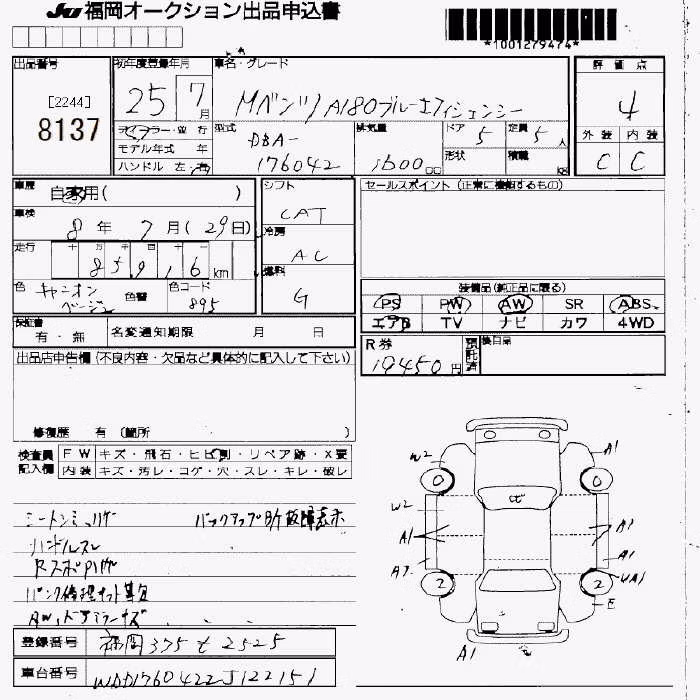 JU 福岡オークション出品申込書
*1001279474*
出品番号 初年度登録年月 車名・グレード 評価点
[2244]
8137
25 7月
Mベンツ A180ブルーエフィシェンシー
4
ディーラー・並行 型式 排気量 ドア 定員 外装 内装
モデル年式 年 DBA- 5 5人
ハンドル 左・右 176042 1600cc 形状 積載 kg C C
車歴 自家用( ) シフト セールスポイント (正常に機能するもの)
CAT
車検 8年 7月(29日) 冷房
AC
走行 十 万 千 百 十
85,916km 燃料
G
色 キャニオンベージュ 色替 色コード 895
装備品(純正品に限る)
PS PW AW SR ABS
エアB TV ナビ カワ 4WD
保証書 有・無 名変通知期限 月 日
R券 19450円 預託済 後日品
出品店申告欄 (不良内容・欠品など具体的に記入して下さい)
修復歴 有 (箇所 )
検査員記入欄 FW キズ・飛石・ヒビ割・リペア跡・X要
内装 キズ・汚レ・コゲ・穴・スレ・キレ・破レ
W2 A1
0 0
W2
A1 A1
A1
2 2 UA1
E
A1
ハンドルスレ
パンク修理キット欠品
AW、ドアミラーキズ
登録番号 福岡 375 せ 2525
車台番号 WDD1760422J122151